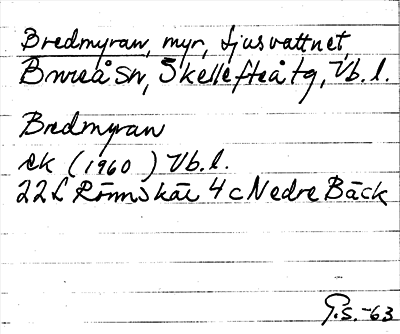 Bredmyran, myr, Ljusvattnet,
Bureå sn, Skellefteå tg, Vb. l.
Bredmyran
ek (1960) Vb. l.
22 L Rönnskär 4 c Nedre Bäck
G.S. -63